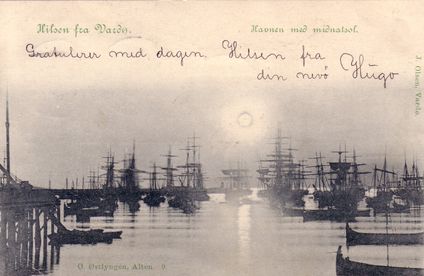 Hilsen fra Vardø.
Havnen med midnatsol.
Gratulerer med dagen. Hilsen fra
din nevö Hugo
J. Olsen, Vardø.
O. Østlyngen, Alten. 9